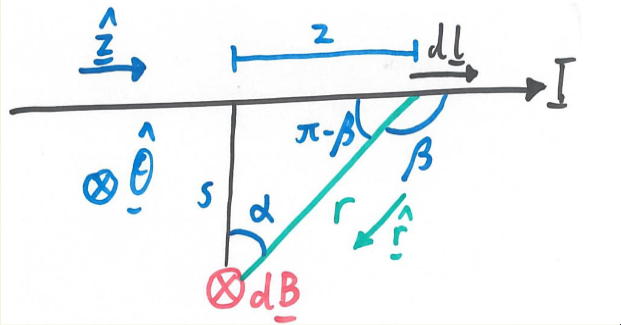 ẑ
z
dl
I
π-β
β
⊗ θ̂
s
α
r
r̂
⊗ dB